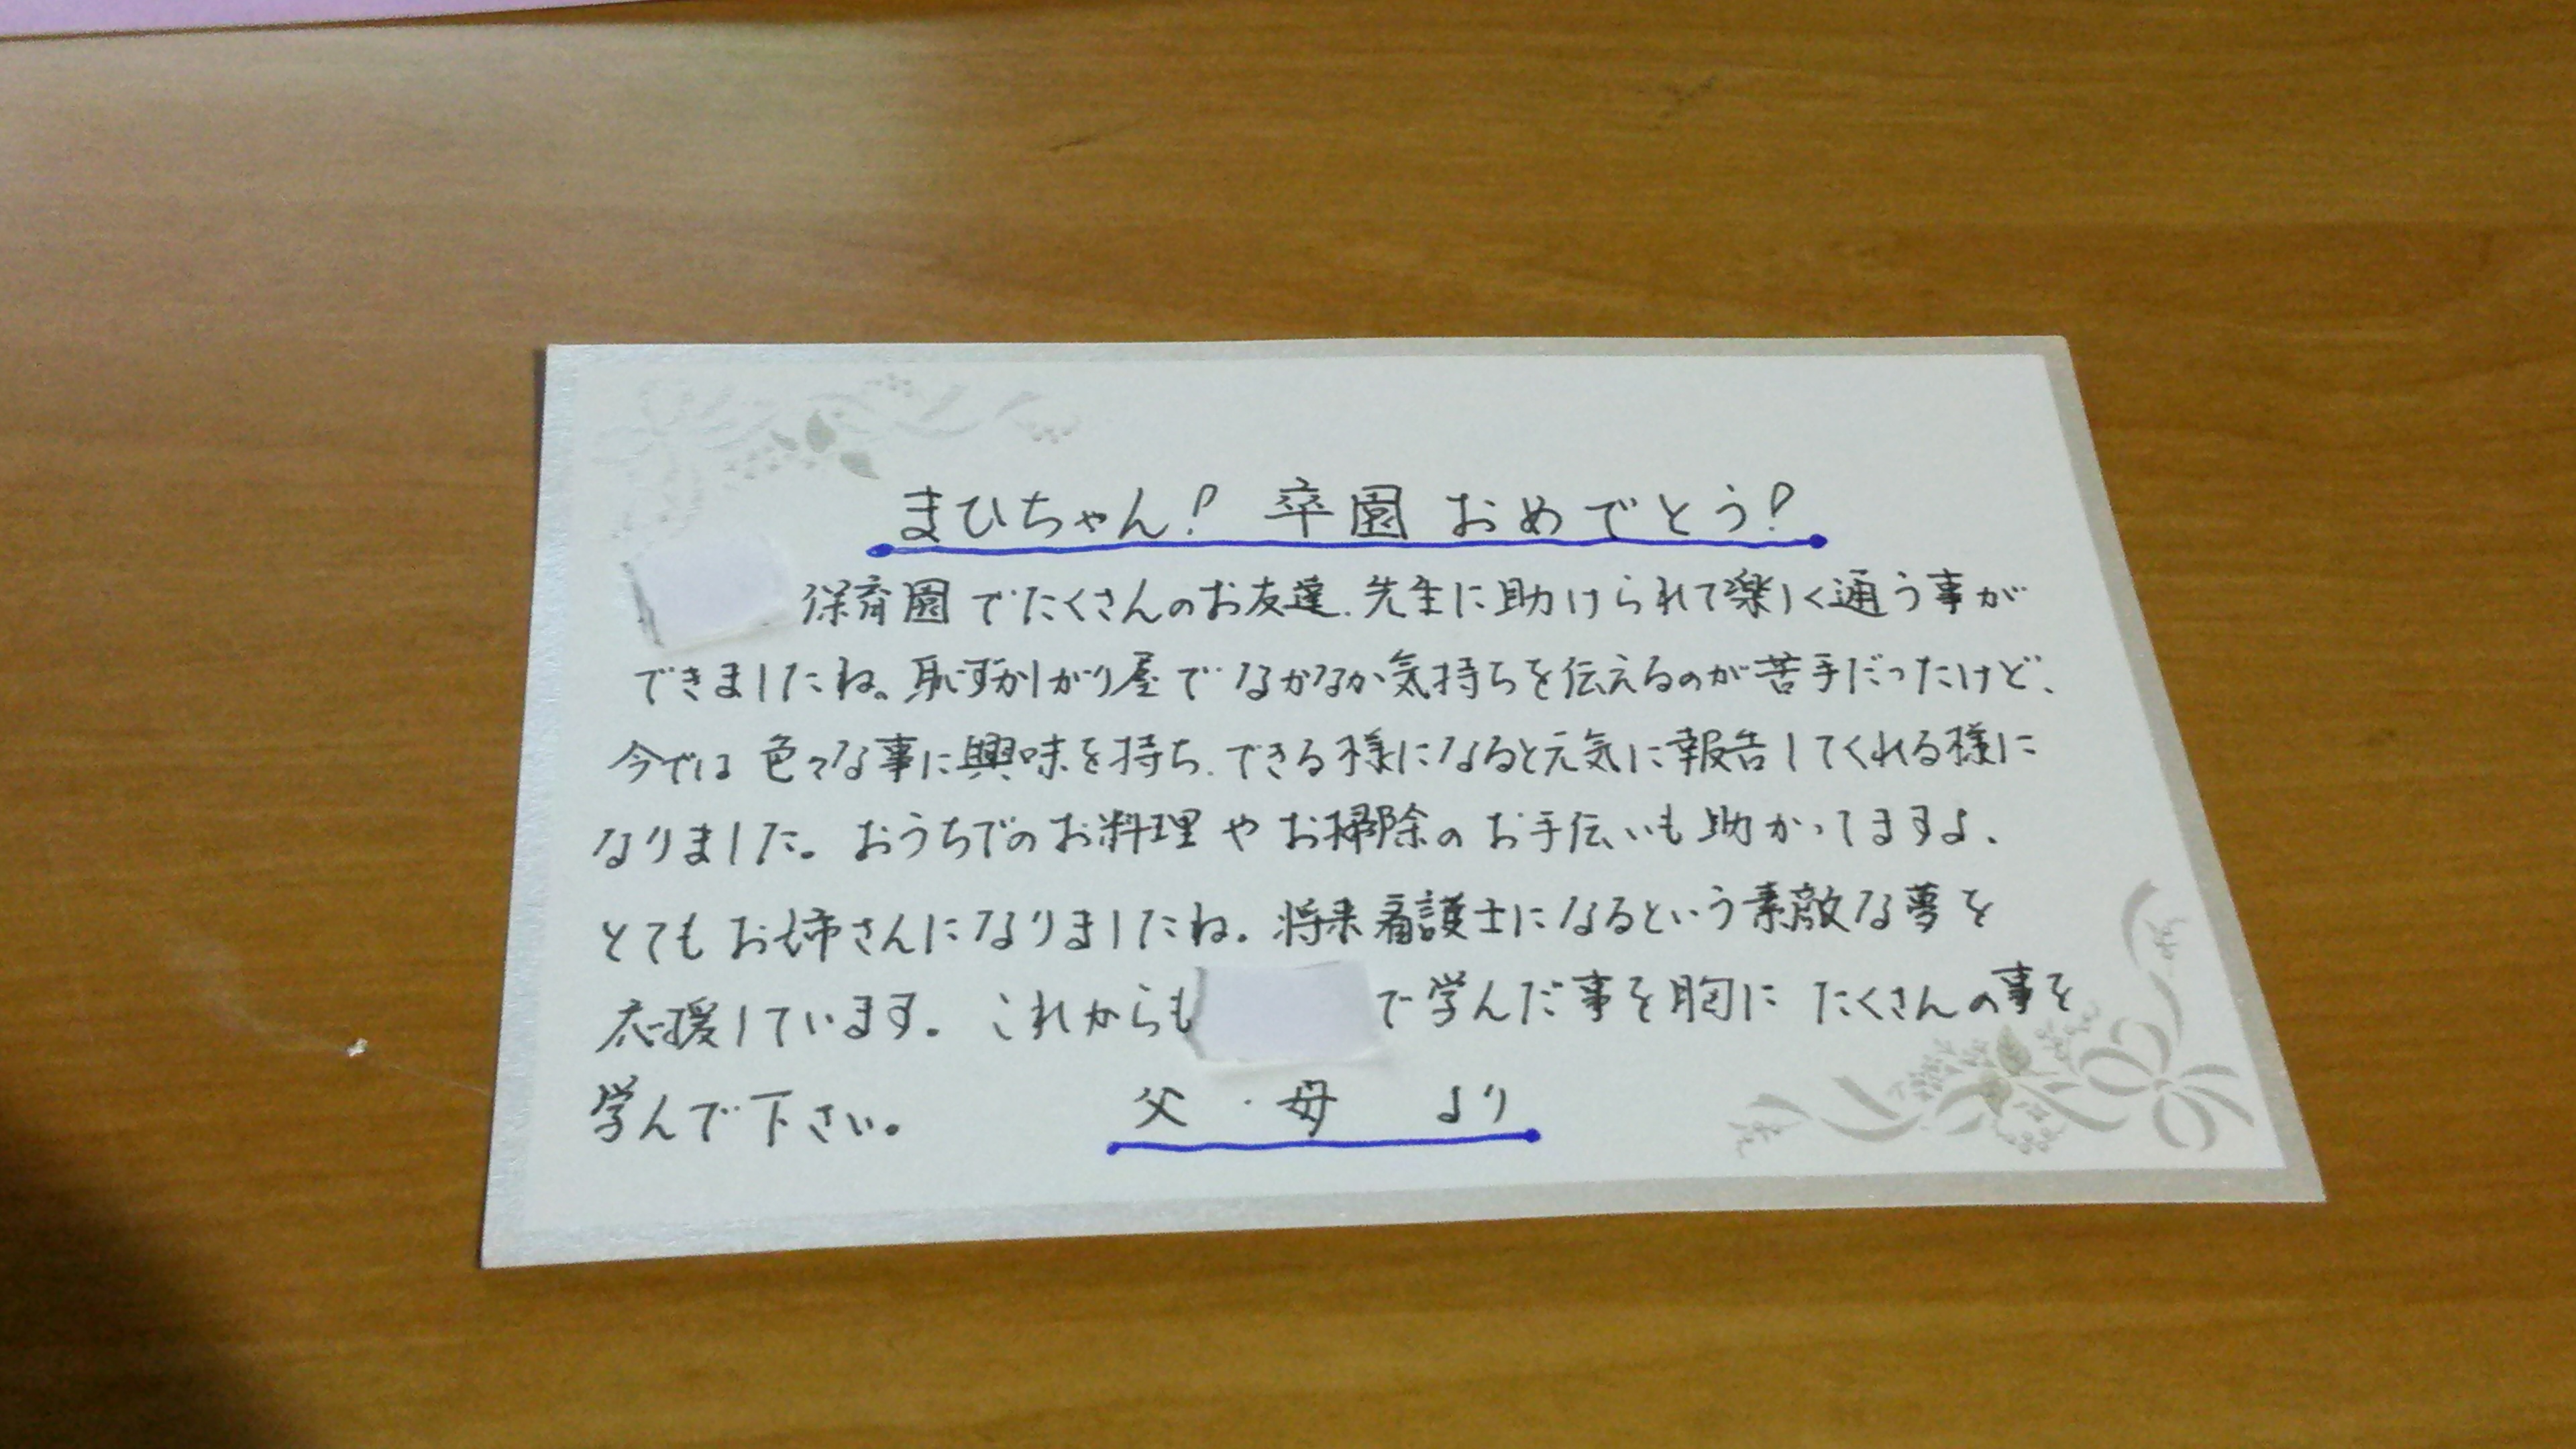 まひちゃん! 卒園 おめでとう!
保育園でたくさんのお友達、先生に助けられて楽しく通う事が
できましたね。恥ずかしがり屋でなかなか気持ちを伝えるのが苦手だったけど、
今では色々な事に興味を持ち、できる様になると元気に報告してくれる様に
なりました。おうちでのお料理やお掃除のお手伝いも助かってますよ、
とてもお姉さんになりましたね。将来看護士になるという素敵な夢を
応援しています。これからも で学んだ事を胸に たくさんの事を
学んで下さい。 父・母 より